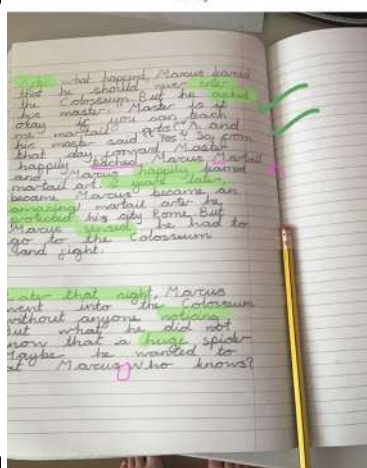 After what happend, Marcus learned
that he should never enter
the Colosseum. But he asked
his master, "Master is it
okay if you can teach
me martail Arts?" A and
his master said "Yes". So from
that day forward Master
happily teached Marcus Martail
and Marcus happily learned
martail art. 2 years later
became Marcus became an
amazing martail arter he
protected his city Rome. But
Marcus sensed he had to
go to the Colosseum
and fight.
Later that night, Marcus
went into the Colosseum
without anyone noticing.
But what he did not
know that a huge spider
Maybe he wanted to
eat Marcus, Who knows?